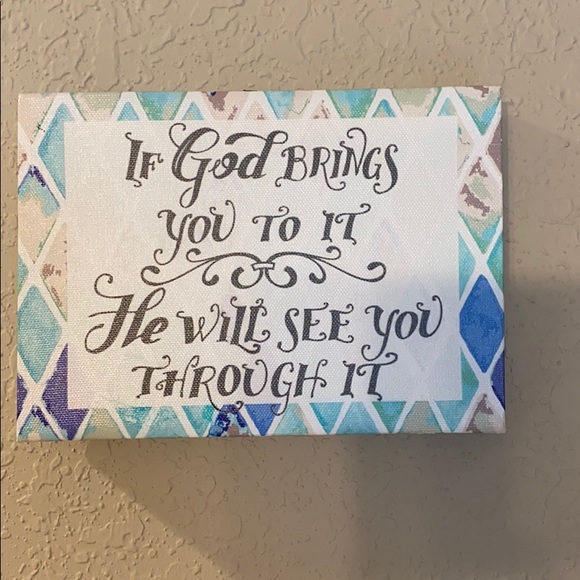 If God BRINGS
YOU TO IT
He WILL SEE YOU
THROUGH IT